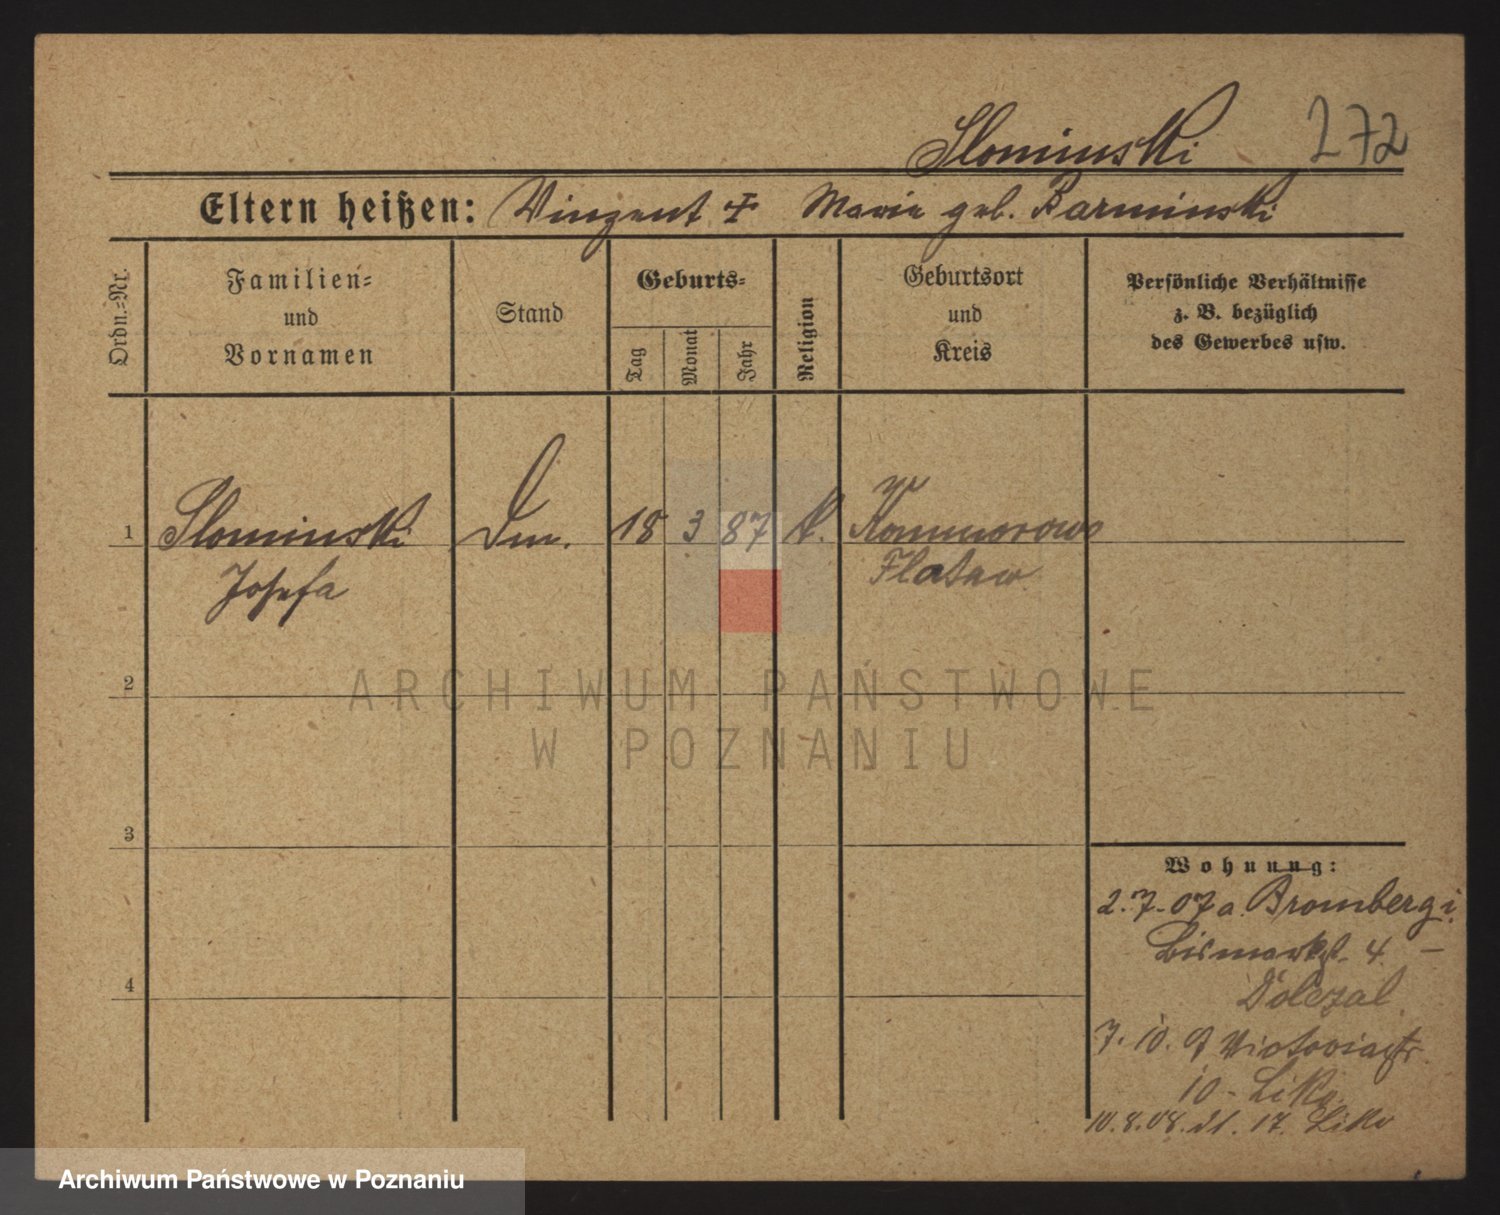 Slominski 272
Eltern heißen: Vinzent + Marie geb. Barminski
Ordn.-Nr.
Familien-
und
Vornamen
Stand
Geburts-
Tag
Monat
Jahr
Religion
Geburtsort
und
Kreis
Persönliche Verhältnisse
z. B. bezüglich
des Gewerbes usw.
1 Slominski 18 3 87 k. Kommorowo
Josefa Flatow
2
3
4
Wohnung:
2.7.07 a. Bromberg i.
Bismarkst. 4 –
Dolezal
7.10.07 Victoriastr.
10 - Like
10.8.08. 17. Like
ARCHIWUM PAŃSTWOWE
W POZNANIU
Archiwum Państwowe w Poznaniu